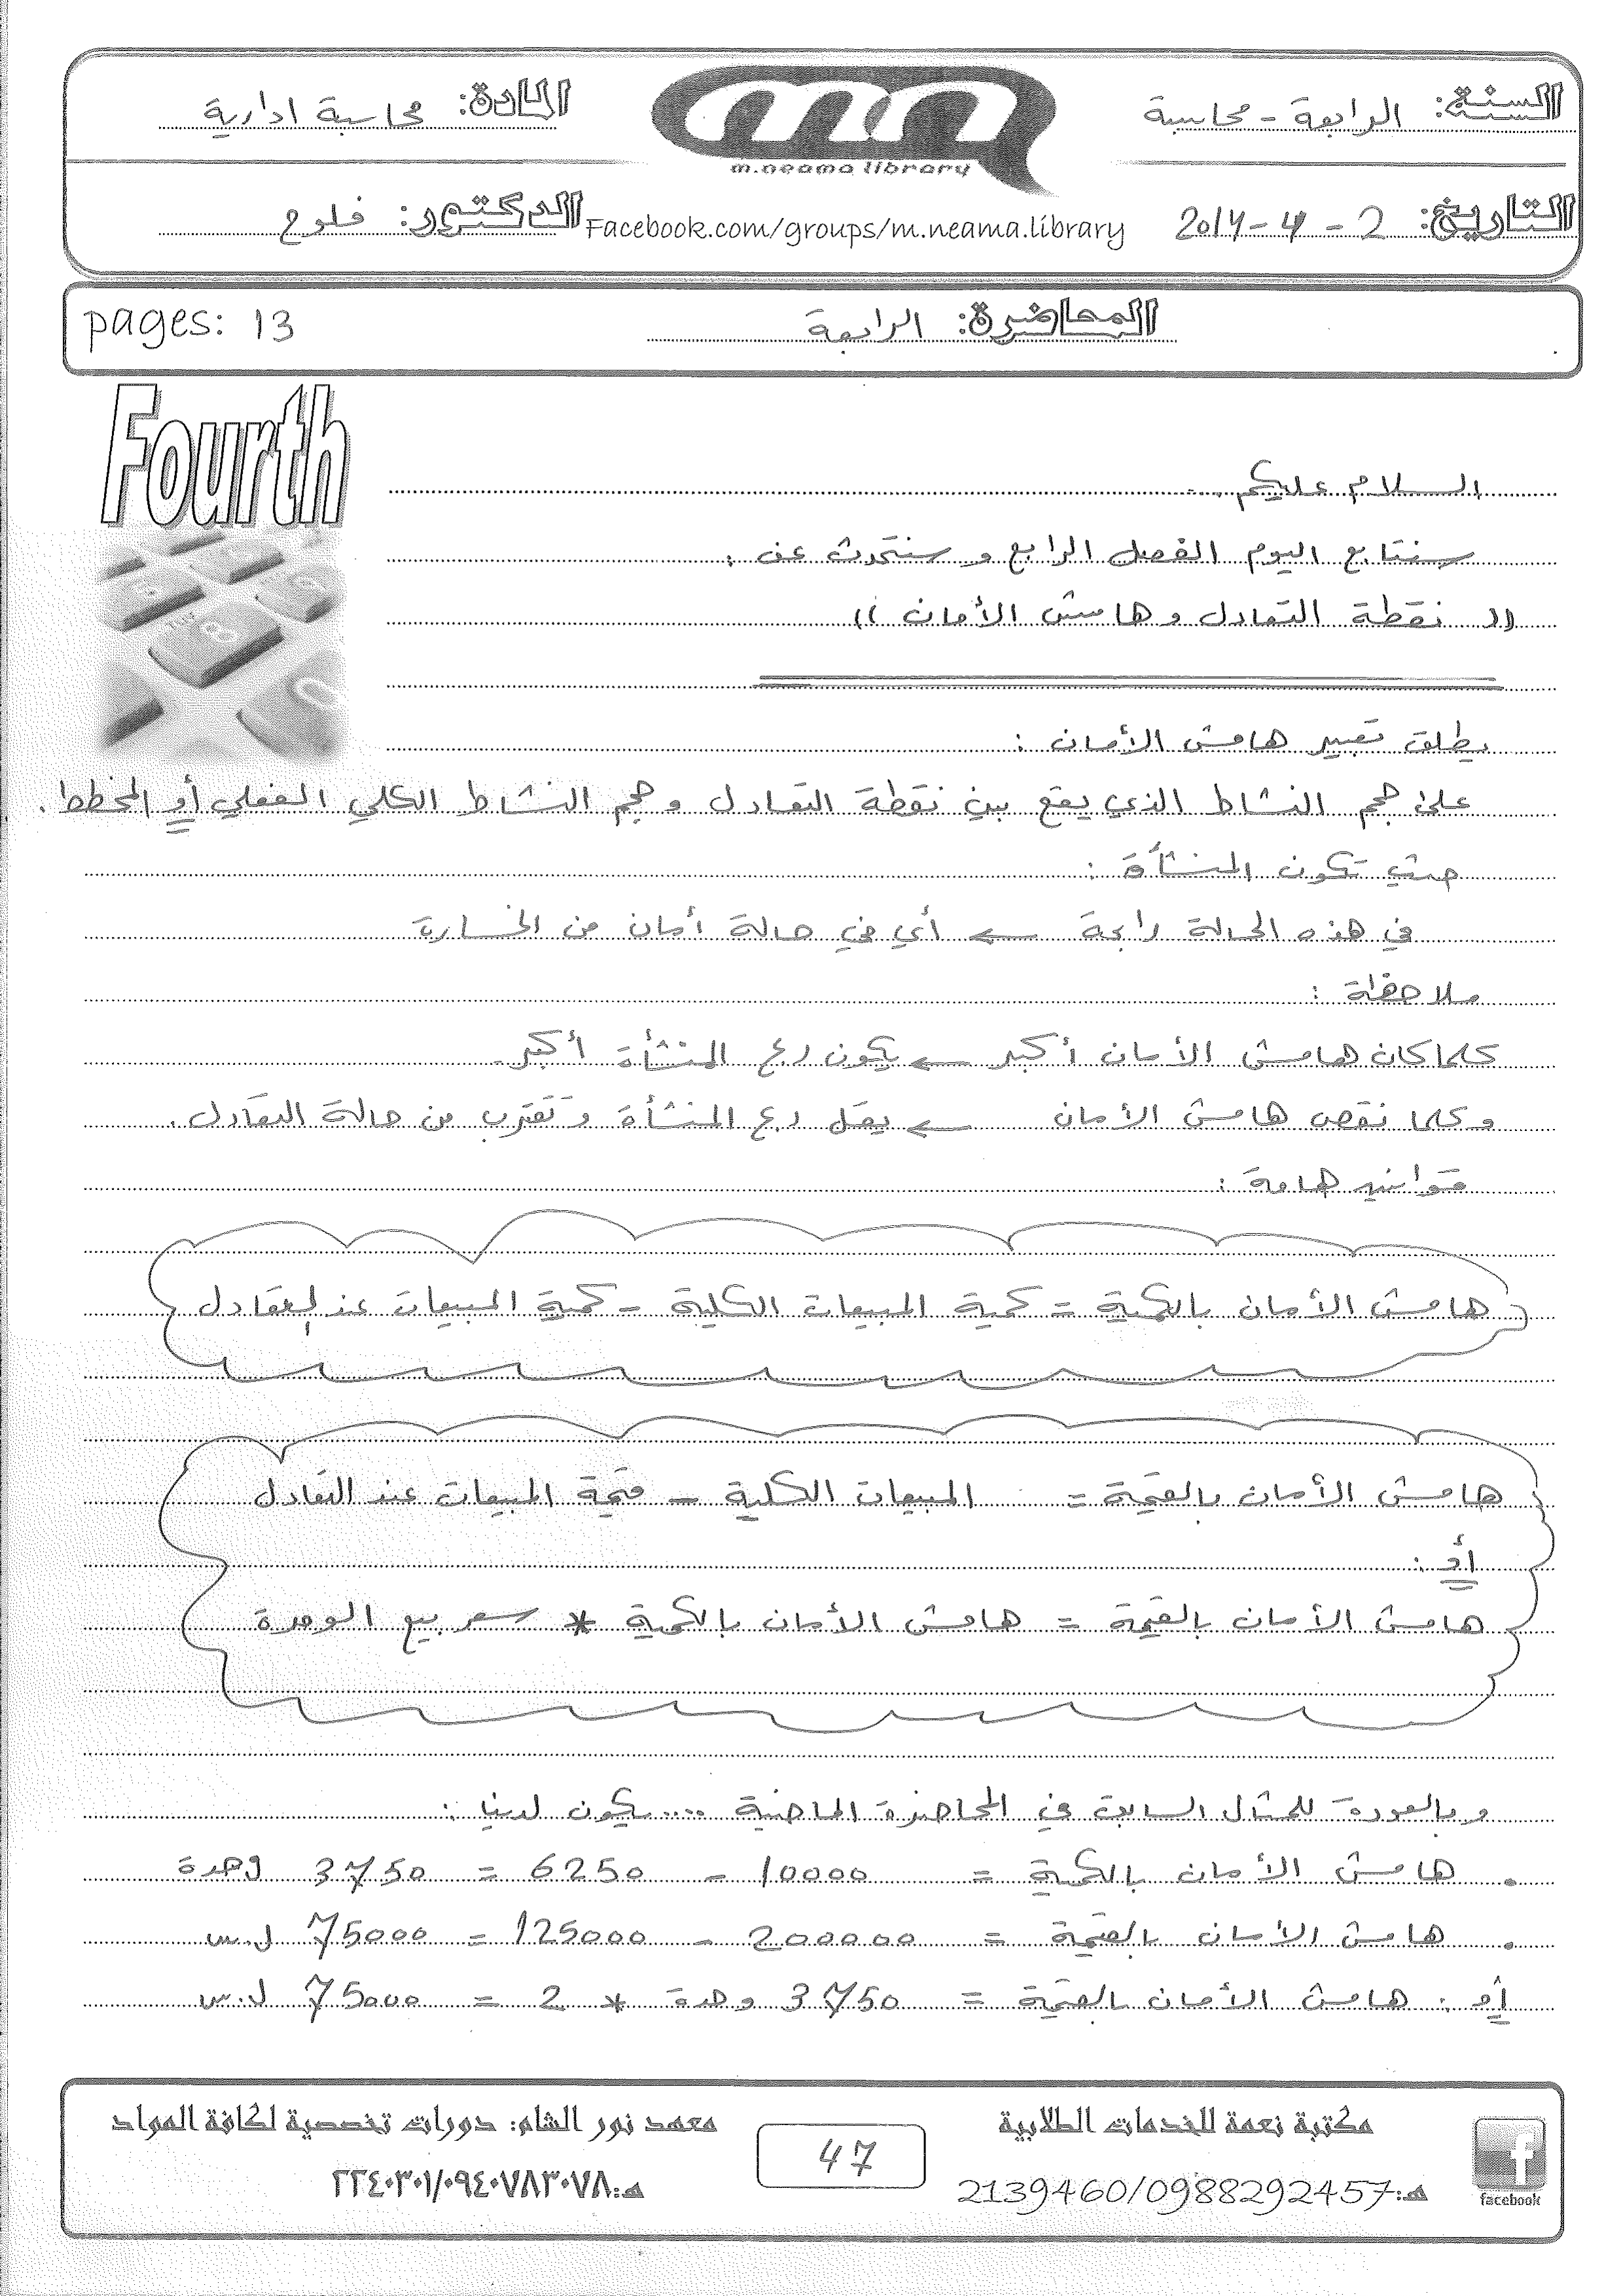 السنة: الرابعة - محاسبة
المادة: محاسبة ادارية
m.neama library
التاريخ: 2 - 4 - 2014
Facebook.com/groups/m.neama.library
الدكتور: فلوح
المحاضرة: الرابعة
pages: 13
Fourth
السلام عليكم ...
سنتابع اليوم الفصل الرابع و سنتحدث عن :
(( نقطة التعادل و هامش الأمان ))
يطلق تعبير هامش الأمان :
على حجم النشاط الذي يقع بين نقطة التعادل و حجم النشاط الكلي الفعلي أو المخطط .
حيث تكون المنشأة :
في هذه الحالة رابحة ← أي في حالة أمان من الخسارة
ملاحظة :
كلما كان هامش الأمان أكبر ← يكون ربح المنشأة أكبر .
و كلما نقص هامش الأمان ← يقل ربح المنشأة و تقترب من حالة التعادل .
قوانين هامة :
هامش الأمان بالكمية = كمية المبيعات الكلية - كمية المبيعات عند التعادل
هامش الأمان بالقيمة = المبيعات الكلية - قيمة المبيعات عند التعادل
أو :
هامش الأمان بالقيمة = هامش الأمان بالكمية * سعر بيع الوحدة
و بالعودة للمثال السابق في المحاضرة الماضية .... يكون لدينا :
. هامش الأمان بالكمية = 10000 - 6250 = 3750 وحدة
. هامش الأمان بالقيمة = 200000 - 125000 = 75000 ل.س
أو : هامش الأمان بالقيمة = 3750 وحدة * 2 = 75000 ل.س
مكتبة نعمة للخدمات الطلابية
هـ: 2139460/0988292457
facebook
47
معهد نور الشام: دورات تخصصية لكافة المواد
هـ: ٢٢٤٠٣٠١/٠٩٤٠٧٨٣٠٧٨